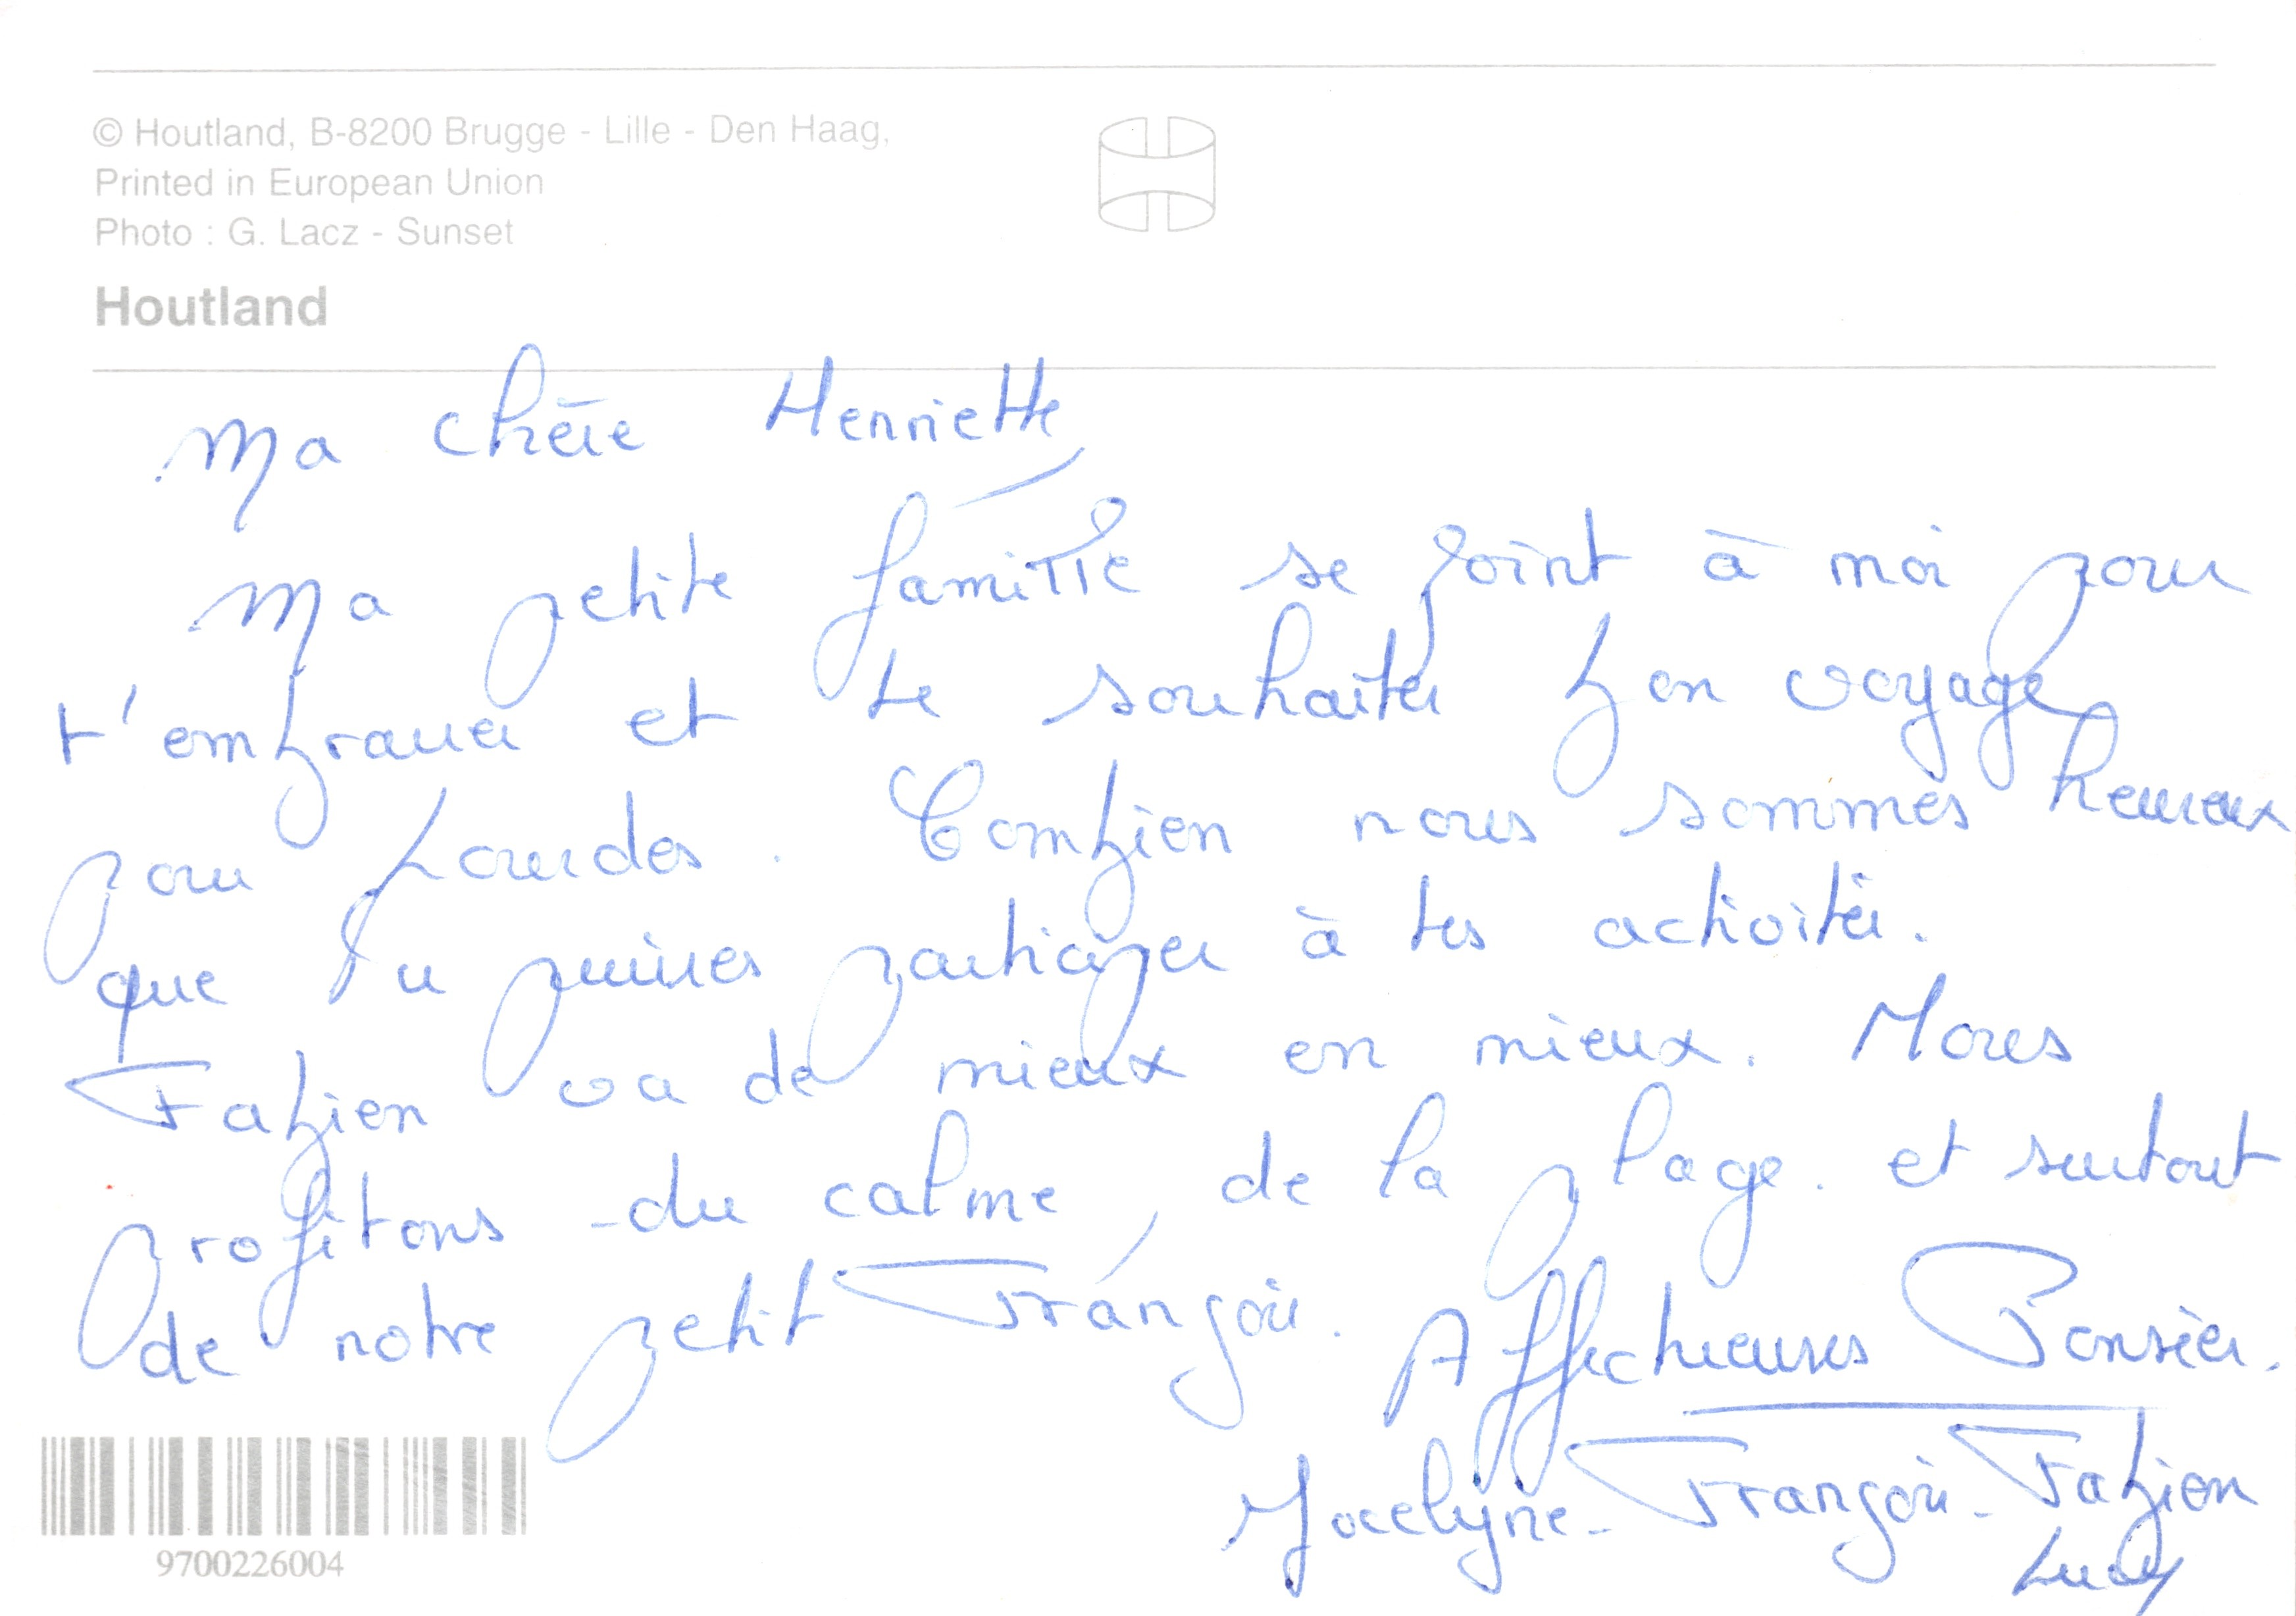 © Houtland, B-8200 Brugge - Lille - Den Haag,
Printed in European Union
Photo : G. Lacz - Sunset
Houtland
Ma chère Henriette,
Ma petite famille se joint à moi pour
t'embrasser et te souhaiter bon voyage
pour Lourdes. Combien nous sommes heureux
que tu puisses participer à tes activités.
Fabien va de mieux en mieux. Nous
profitons du calme, de la plage. et surtout
de notre petit François. Affectueuses Pensées.
Jocelyne - François - Fabien
Lucy
9700226004